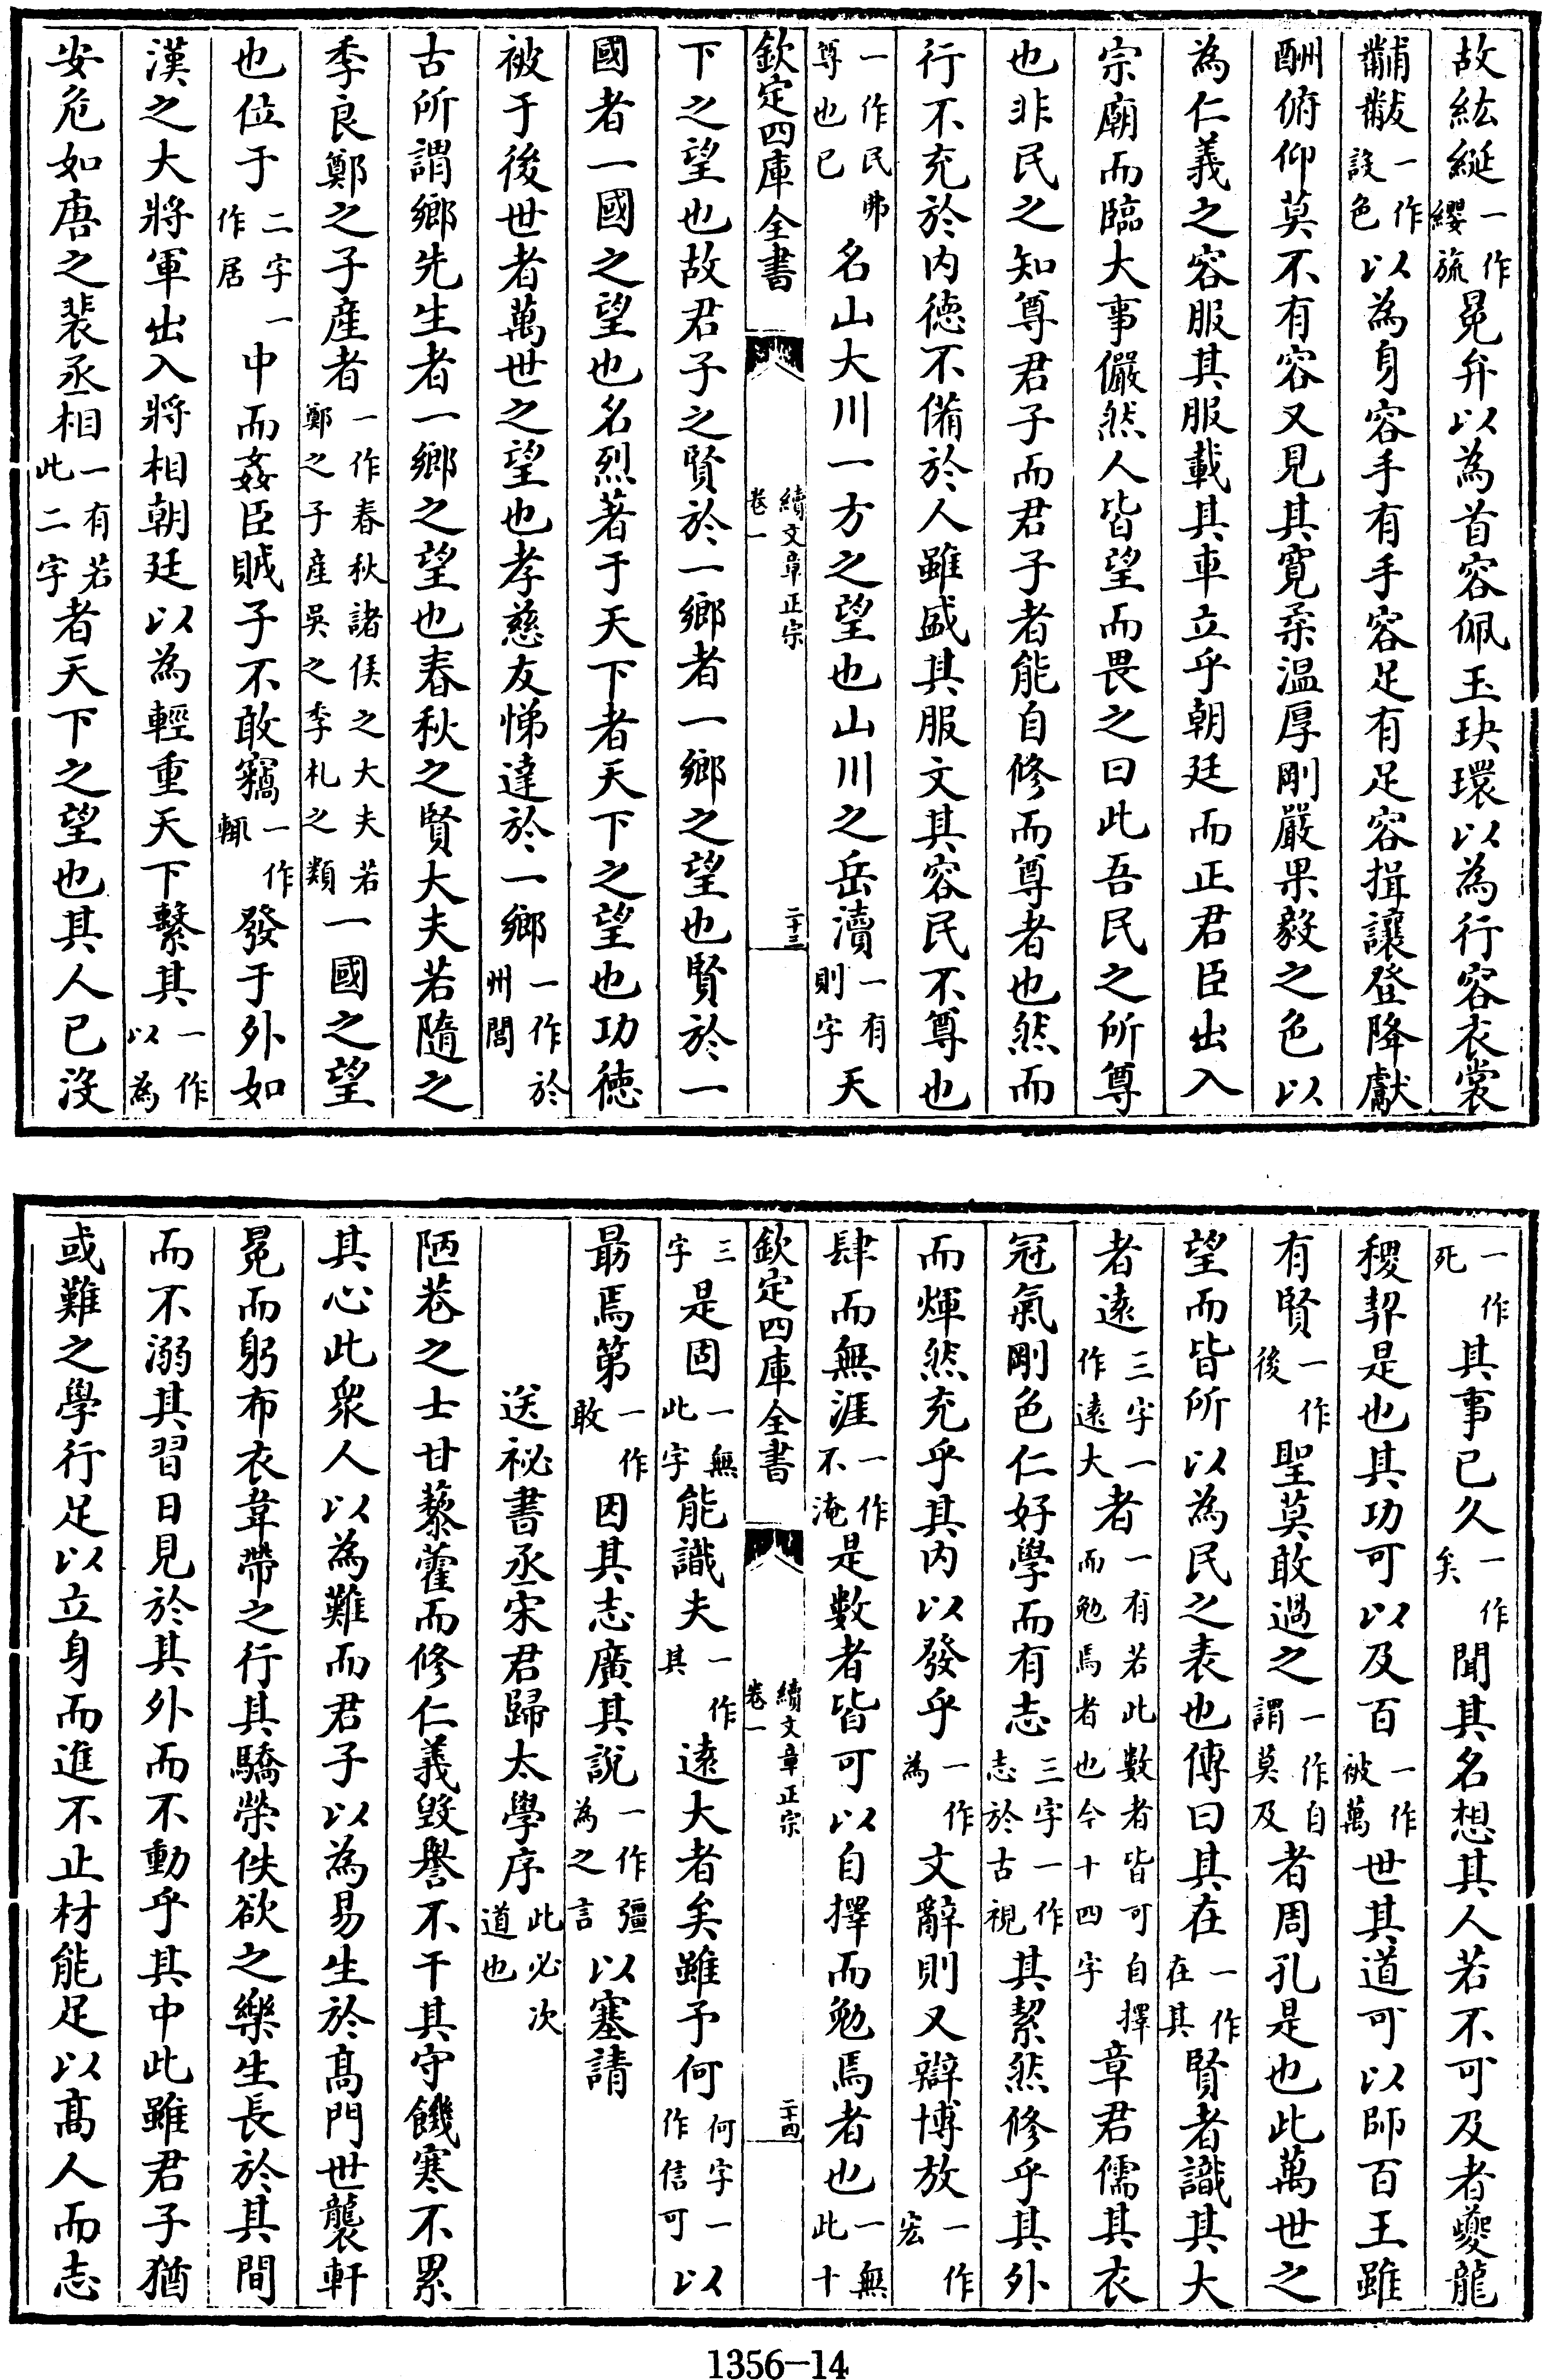 故紘綖一作纓旒冕弁以為首容佩玉玦環以為行容衣裳
黼黻一作設色以為身容手有手容足有足容揖讓登降獻
酬俯仰莫不有容又見其寛柔温厚剛嚴果毅之色以
為仁義之容服其服載其車立乎朝廷而正君臣出入
宗廟而臨大事儼然人皆望而畏之曰此吾民之所尊
也非民之知尊君子而君子者能自修而尊者也然而
行不充於内徳不備於人雖盛其服文其容民不尊也
一作民弗尊也已名山大川一方之望也山川之岳瀆一有則字天
欽定四庫全書 續文章正宗 卷一 二十三
下之望也故君子之賢於一鄉者一鄉之望也賢於一
國者一國之望也名烈著于天下者天下之望也功徳
被于後世者萬世之望也孝慈友悌達於一鄉一作於州閭
古所謂鄉先生者一鄉之望也春秋之賢大夫若隨之
季良鄭之子産者一作春秋諸侯之大夫若鄭之子産吳之季札之類一國之望
也位于二字一作居中而姦臣賊子不敢竊一作輒發于外如
漢之大將軍出入將相朝廷以為輕重天下繫其一作以為
安危如唐之裴丞相一有若此二字者天下之望也其人已沒
一作死其事已久一作矣聞其名想其人若不可及者夔龍
稷契是也其功可以及百一作被萬世其道可以師百王雖
有賢一作後聖莫敢過之一作自謂莫及者周孔是也此萬世之
望而皆所以為民之表也傳曰其在一作在其賢者識其大
者遠三字一作遠大者一有若此數者皆可自擇而勉焉者也今十四字章君儒其衣
冠氣剛色仁好學而有志三字一作志於古視其絜然修乎其外
而煇然充乎其内以發乎一作為文辭則又辯博放一作宏
肆而無涯一作不淹是數者皆可以自擇而勉焉者也一無此十
欽定四庫全書 續文章正宗 卷一 二十四
三字是固一無此字能識夫一作其遠大者矣雖予何何字一作信可以
朂焉第一作敢因其志廣其說一作彊為之言以塞請
送祕書丞宋君歸太學序此必次道也
陋巷之士甘藜藿而修仁義毁譽不干其守饑寒不累
其心此衆人以為難而君子以為易生於髙門世襲軒
冕而躬布衣韋帶之行其驕榮佚欲之樂生長於其間
而不溺其習日見於其外而不動乎其中此雖君子猶
或難之學行足以立身而進不止材能足以髙人而志
1356-14